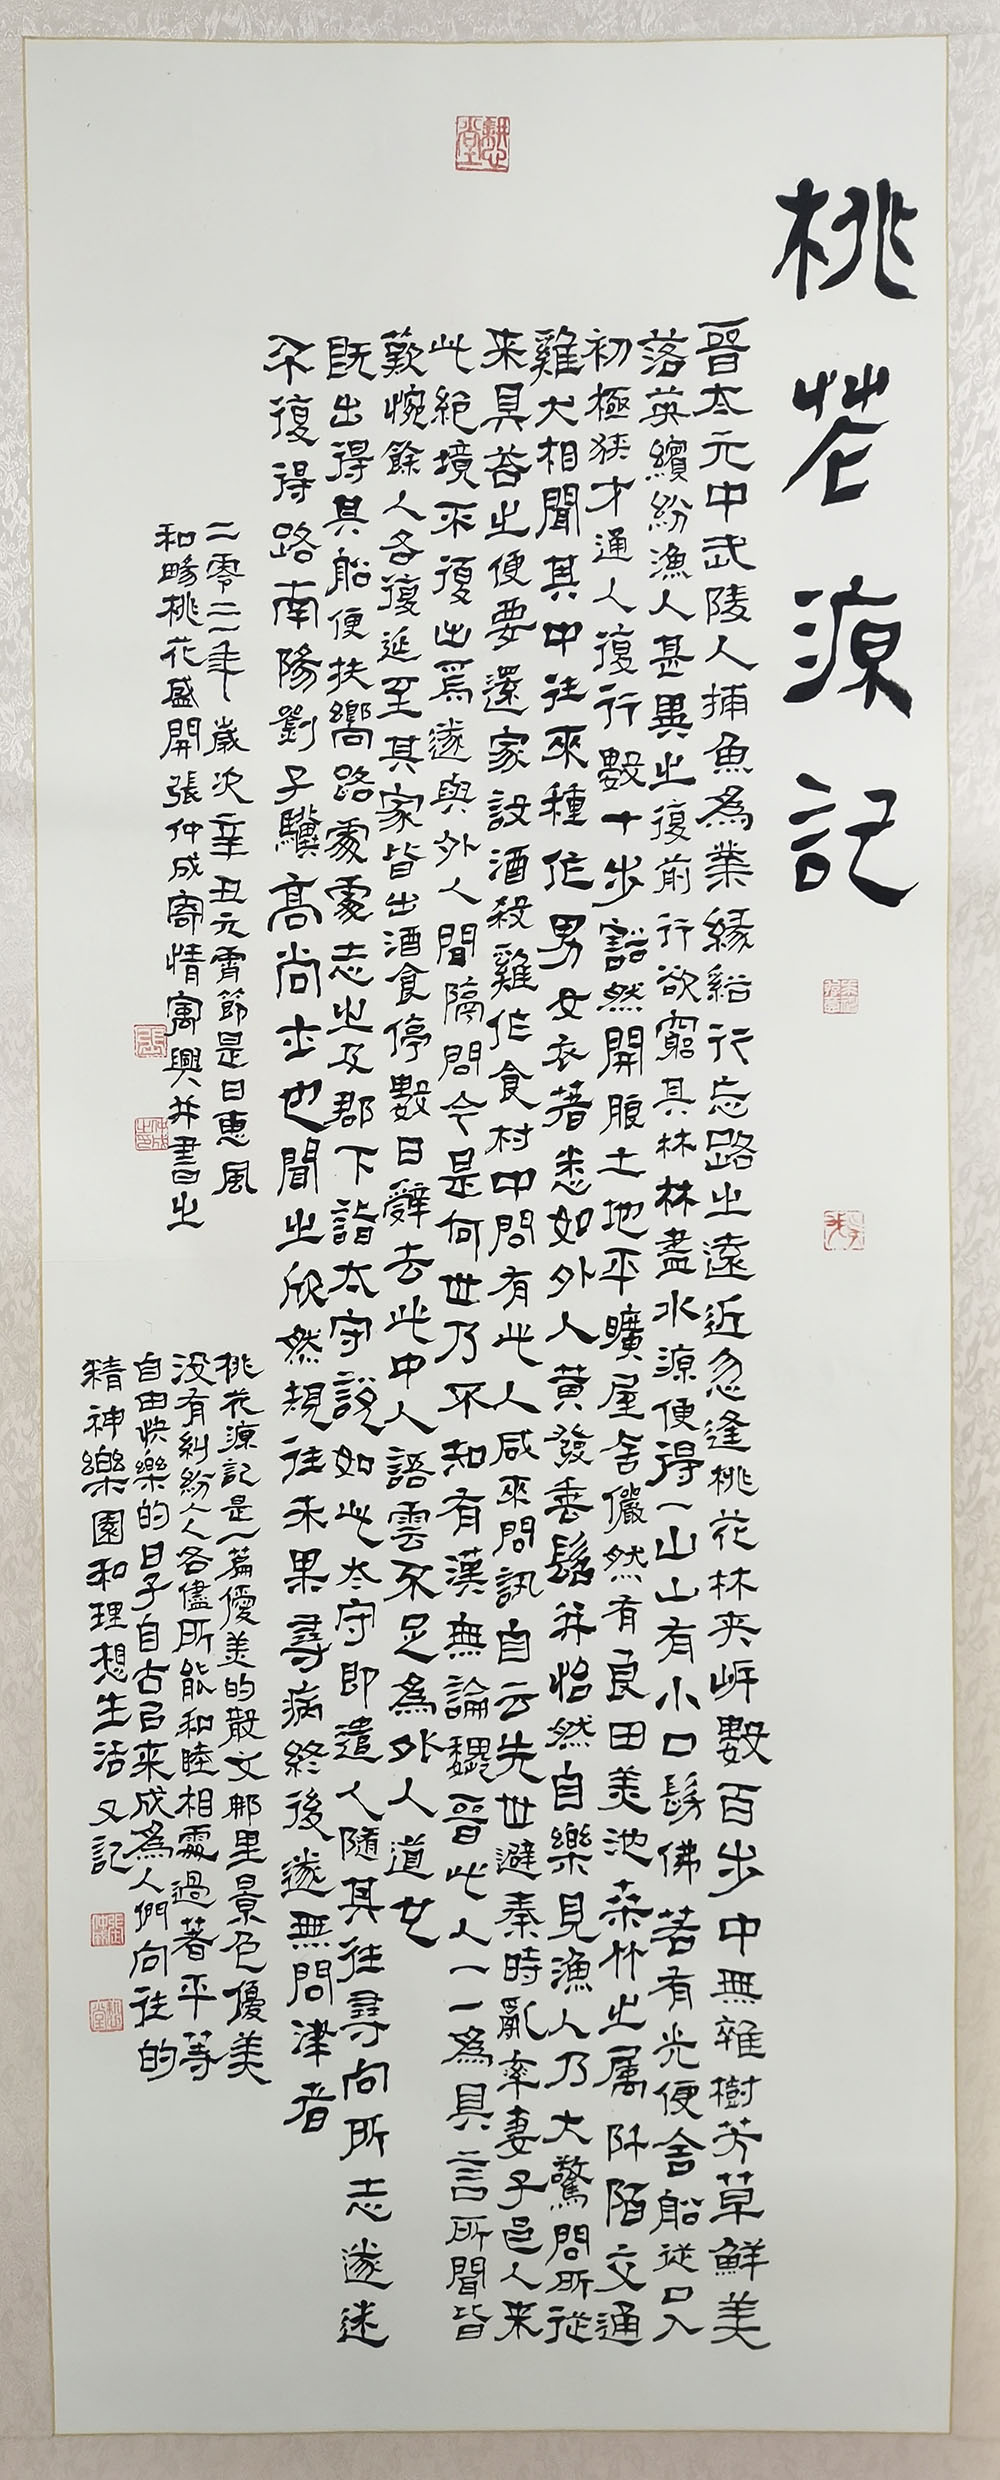 桃花源記
晉太元中武陵人捕魚為業緣谿行忘路之遠近忽逢桃花林夾岸數百步中無雜樹芳草鮮美
落英繽紛漁人甚異之復前行欲窮其林林盡水源便得一山山有小口髣佛若有光便舍船從口入
初極狹才通人復行數十步豁然開朗土地平曠屋舍儼然有良田美池桑竹之属阡陌交通
雞犬相聞其中往來種作男女衣著悉如外人黃發垂髫并怡然自樂見漁人乃大驚問所從
来具荅之便要還家設酒殺雞作食村中問有此人咸來問訊自云先世避秦時亂率妻子邑人来
此絶境不復出焉遂與外人間隔問今是何世乃不知有漢無論魏晉此人一一為具言所聞皆
歎惋餘人各復延至其家皆出酒食停數日辭去此中人語雲不足為外人道也
既出得其船便扶嚮路處處志之及郡下詣太守說如此太守即遣人隨其往尋向所志遂迷
不復得路南陽劉子驥高尚士也聞之欣然規往未果尋病終後遂無問津者
二零二一年歲次辛丑元宵節是日惠風
和暢桃花盛開張仲成寄情寓興并書之
桃花源記是一篇優美的散文那里景色優美
没有糾紛人人各儘所能和睦相處過著平等
自由快樂的日子自古已来成為人們向往的
精神樂園和理想生活又記